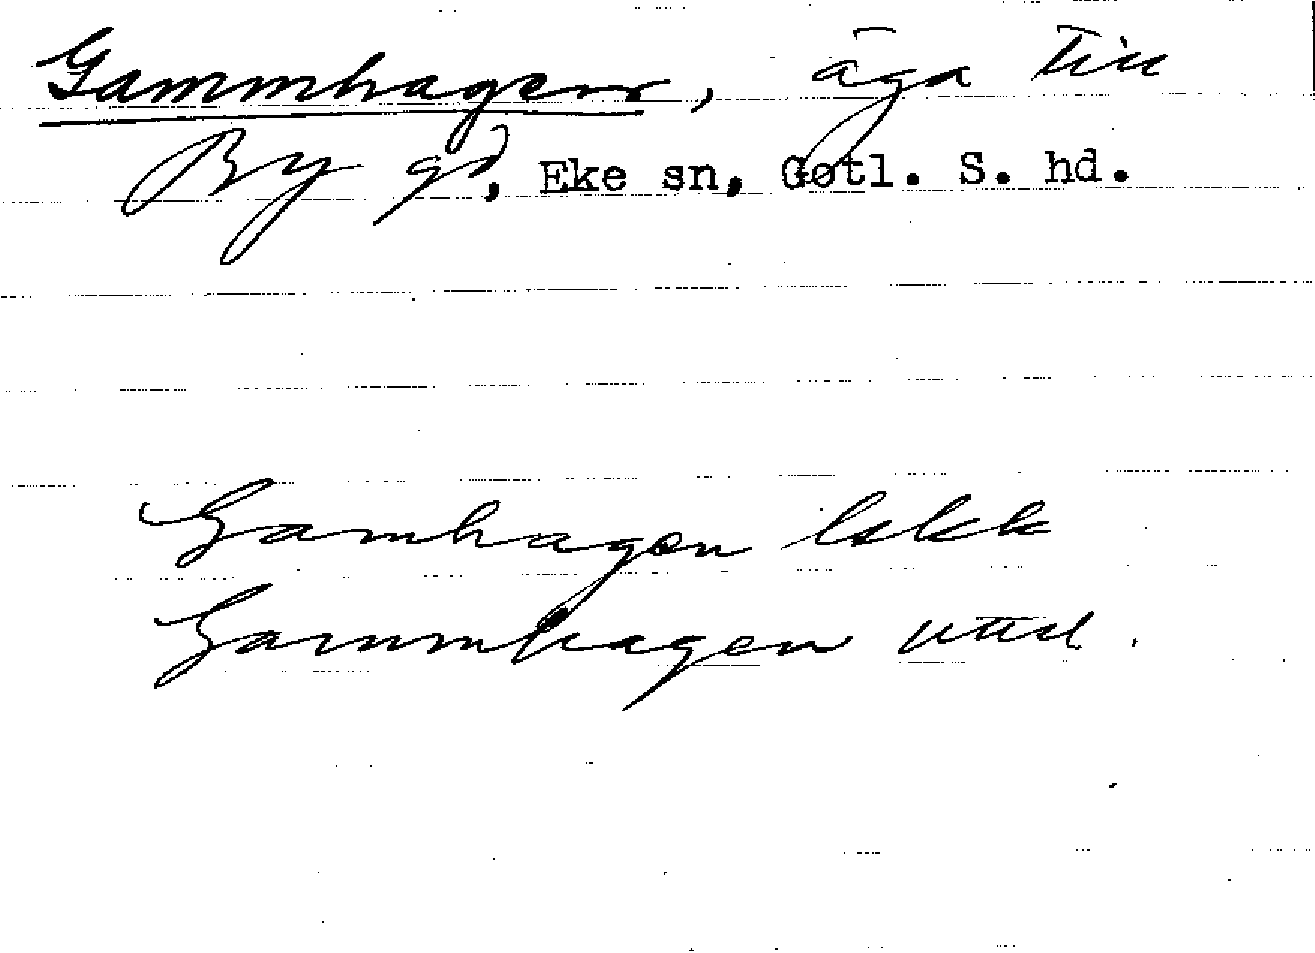 Gammhagen, äga till
By gd, Eke sn, Gotl. S. hd.
Gamhagen lskk
Gammhagen uttal.